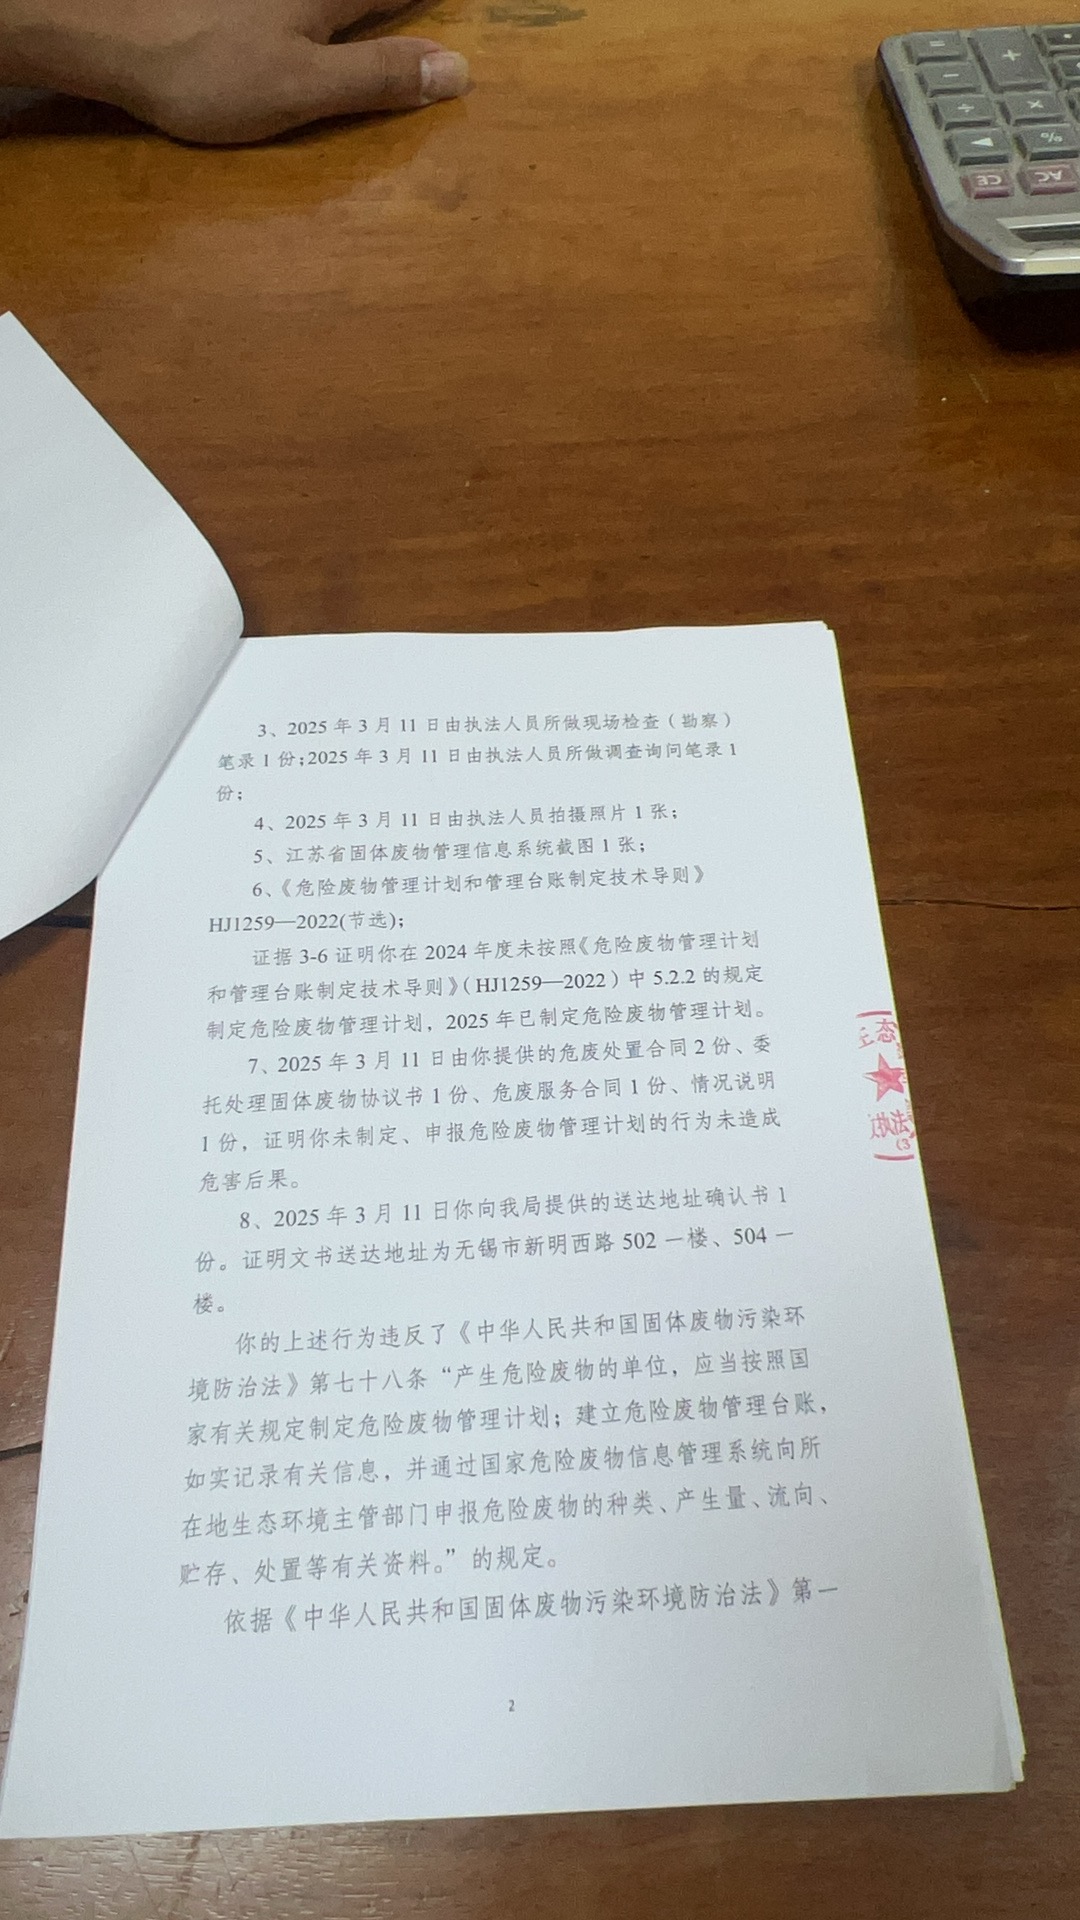 3、2025 年 3 月 11 日由执法人员所做现场检查（勘察）
笔录 1 份;2025 年 3 月 11 日由执法人员所做调查询问笔录 1
份；
4、2025 年 3 月 11 日由执法人员拍摄照片 1 张；
5、江苏省固体废物管理信息系统截图 1 张；
6、《危险废物管理计划和管理台账制定技术导则》
HJ1259—2022(节选)；
证据 3-6 证明你在 2024 年度未按照《危险废物管理计划
和管理台账制定技术导则》（HJ1259—2022）中 5.2.2 的规定
制定危险废物管理计划，2025 年已制定危险废物管理计划。
7、2025 年 3 月 11 日由你提供的危废处置合同 2 份、委
托处理固体废物协议书 1 份、危废服务合同 1 份、情况说明
1 份，证明你未制定、申报危险废物管理计划的行为未造成
危害后果。
8、2025 年 3 月 11 日你向我局提供的送达地址确认书 1
份。证明文书送达地址为无锡市新明西路 502 一楼、504 一
楼。
你的上述行为违反了《中华人民共和国固体废物污染环
境防治法》第七十八条“产生危险废物的单位，应当按照国
家有关规定制定危险废物管理计划；建立危险废物管理台账，
如实记录有关信息，并通过国家危险废物信息管理系统向所
在地生态环境主管部门申报危险废物的种类、产生量、流向、
贮存、处置等有关资料。”的规定。
依据《中华人民共和国固体废物污染环境防治法》第一
2
态
执法
(3
=
+
-
÷
×
%
CE
AC